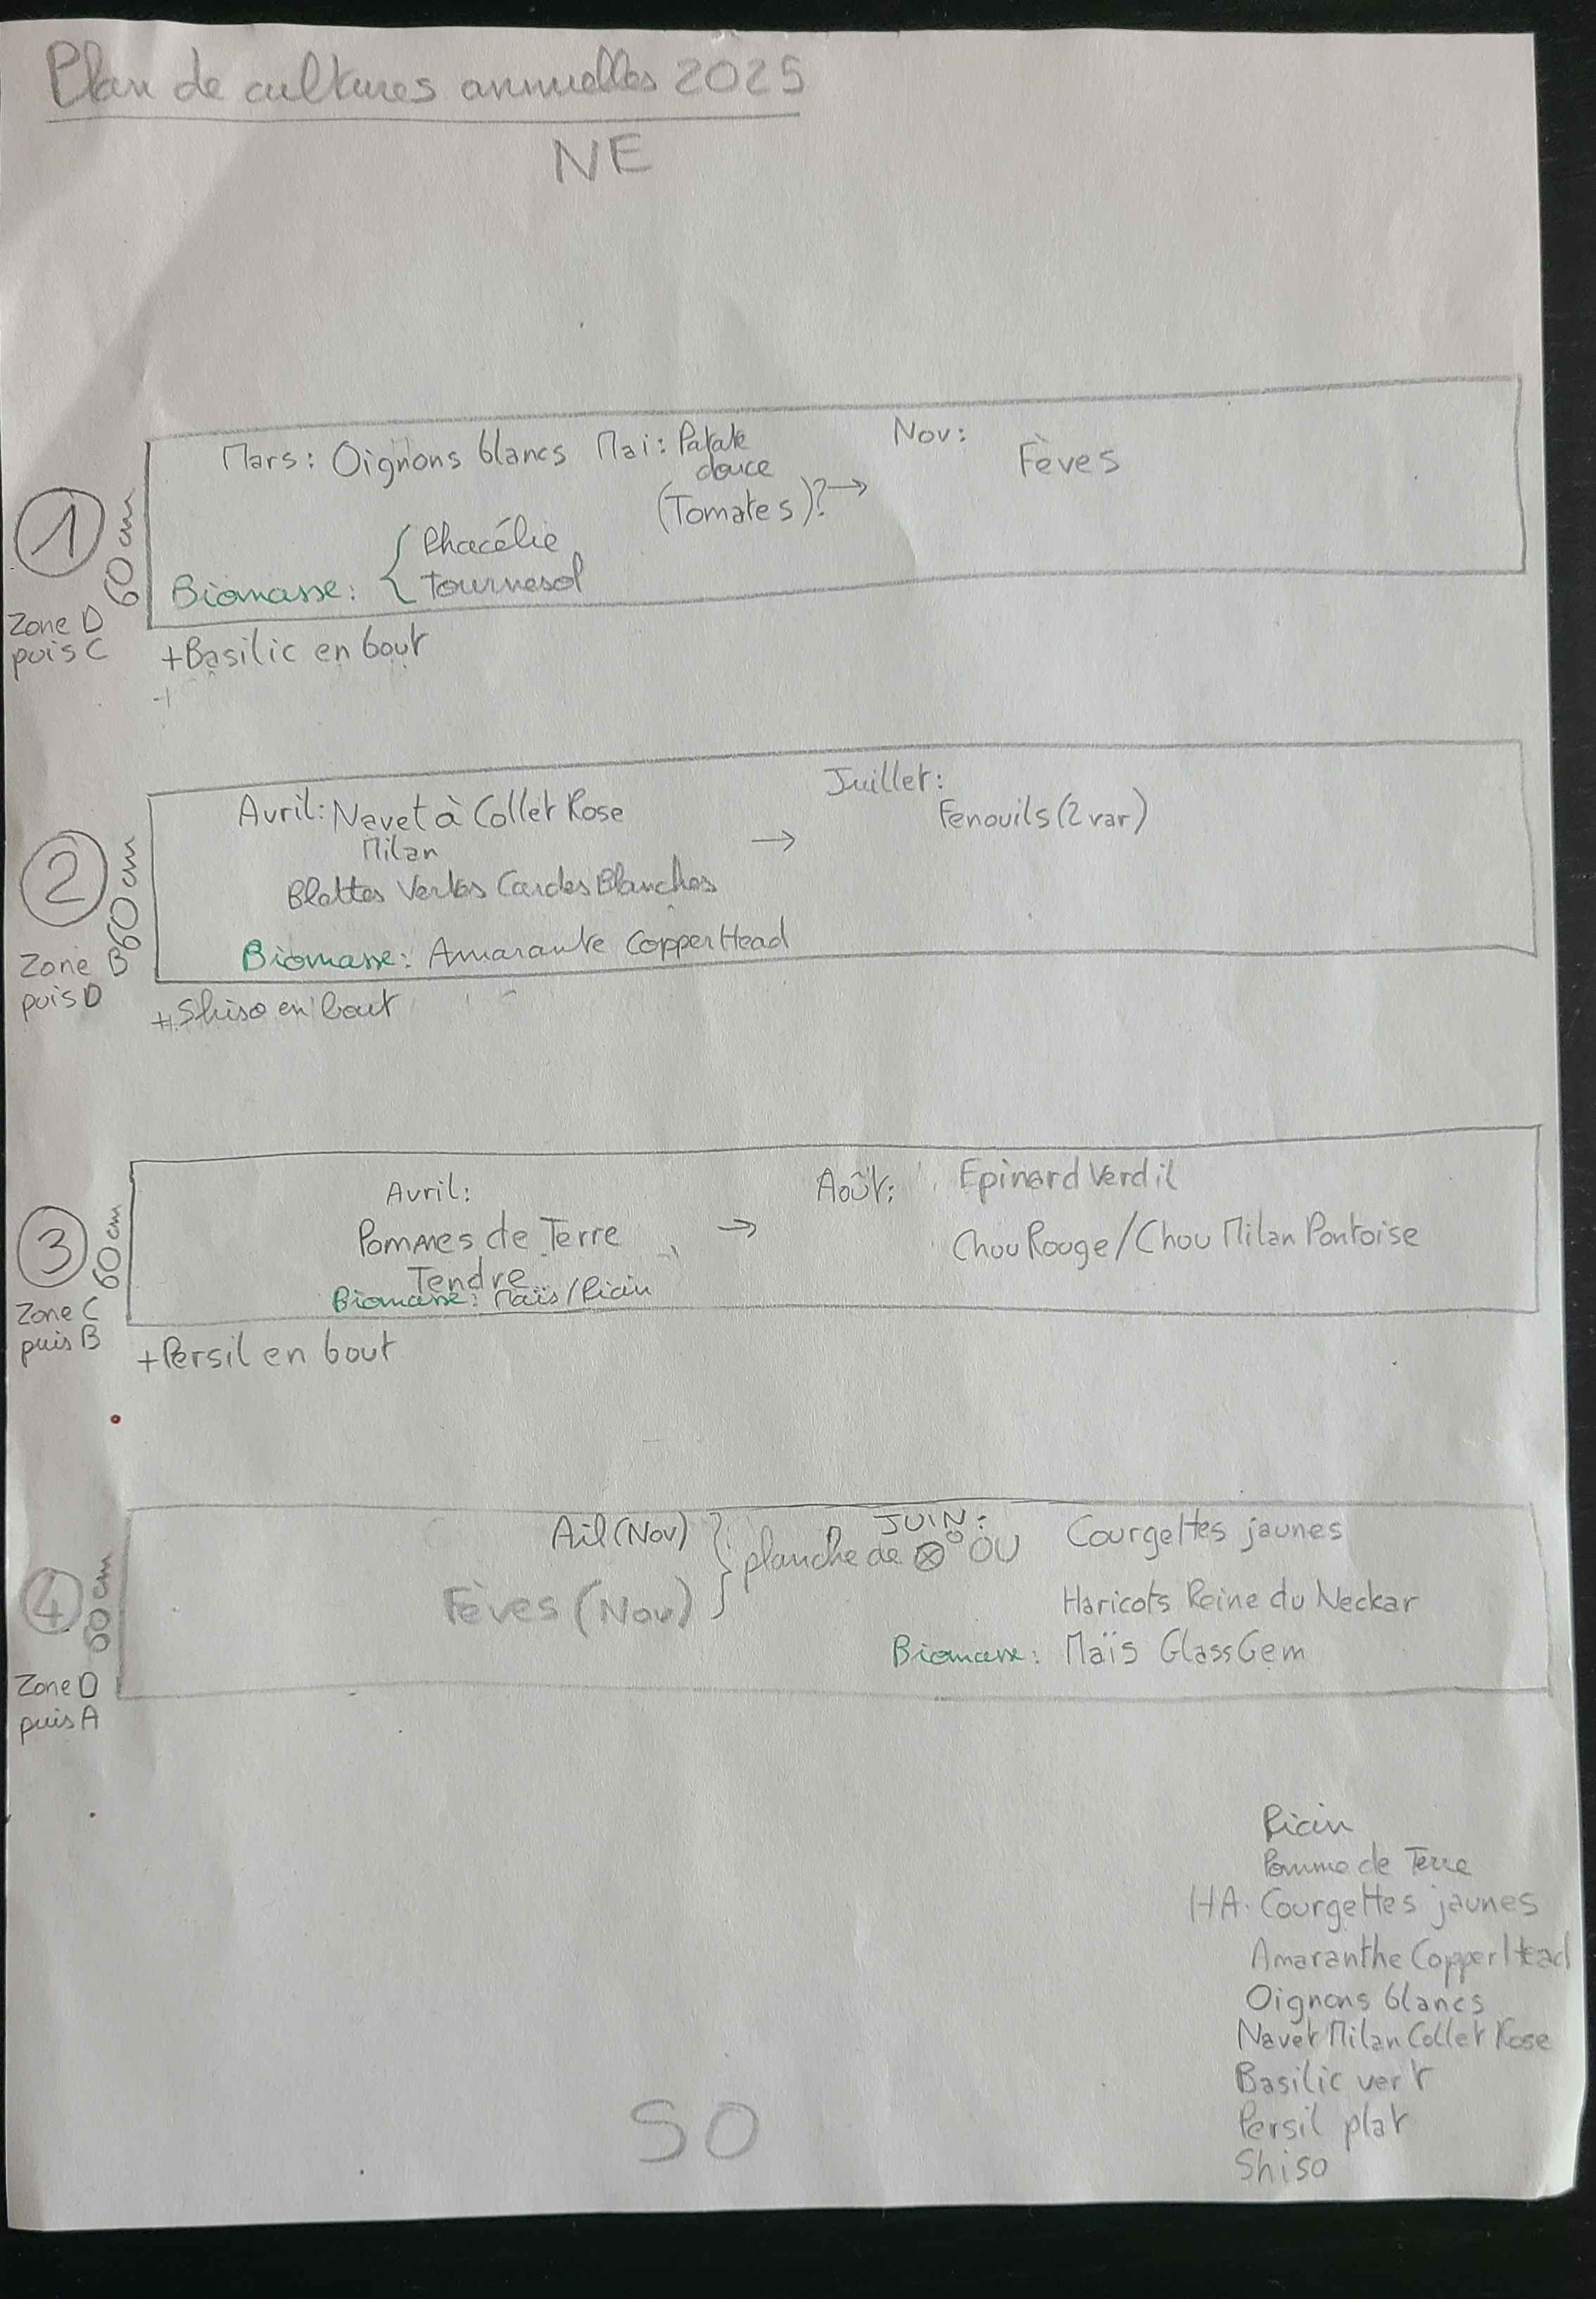 Plan de cultures annuelles 2025
NE
Mars: Oignons blancs Mai: Patate
douce
(Tomates)? →
Nov:
Fèves
Biomasse: { Phacélie
Tournesol
1
60 cm
Zone D
puis C
+Basilic en bout
Avril: Navet à Collet Rose
Milan
Blettes Vertes Cardes Blanches
→
Juillet:
Fenouils (2 var)
Biomasse: Amarante CopperHead
2
60 cm
Zone B
puis D
+ Shiso en bout
Avril:
Pommes de Terre
Tendre
→
Août: Epinard Verdil
Chou Rouge/Chou Milan Pontoise
Biomasse: Maïs/Ricin
3
60 cm
Zone C
puis B
+Persil en bout
Ail (Nov)
Fèves (Nov)
} planche de
JUIN:
OU
Courgettes jaunes
Haricots Reine du Neckar
Biomasse: Maïs GlassGem
4
60 cm
Zone D
puis A
Ricin
Pomme de Terre
HA. Courgettes jaunes
Amaranthe CopperHead
Oignons blancs
Navet Milan Collet Rose
Basilic vert
Persil plat
Shiso
SO